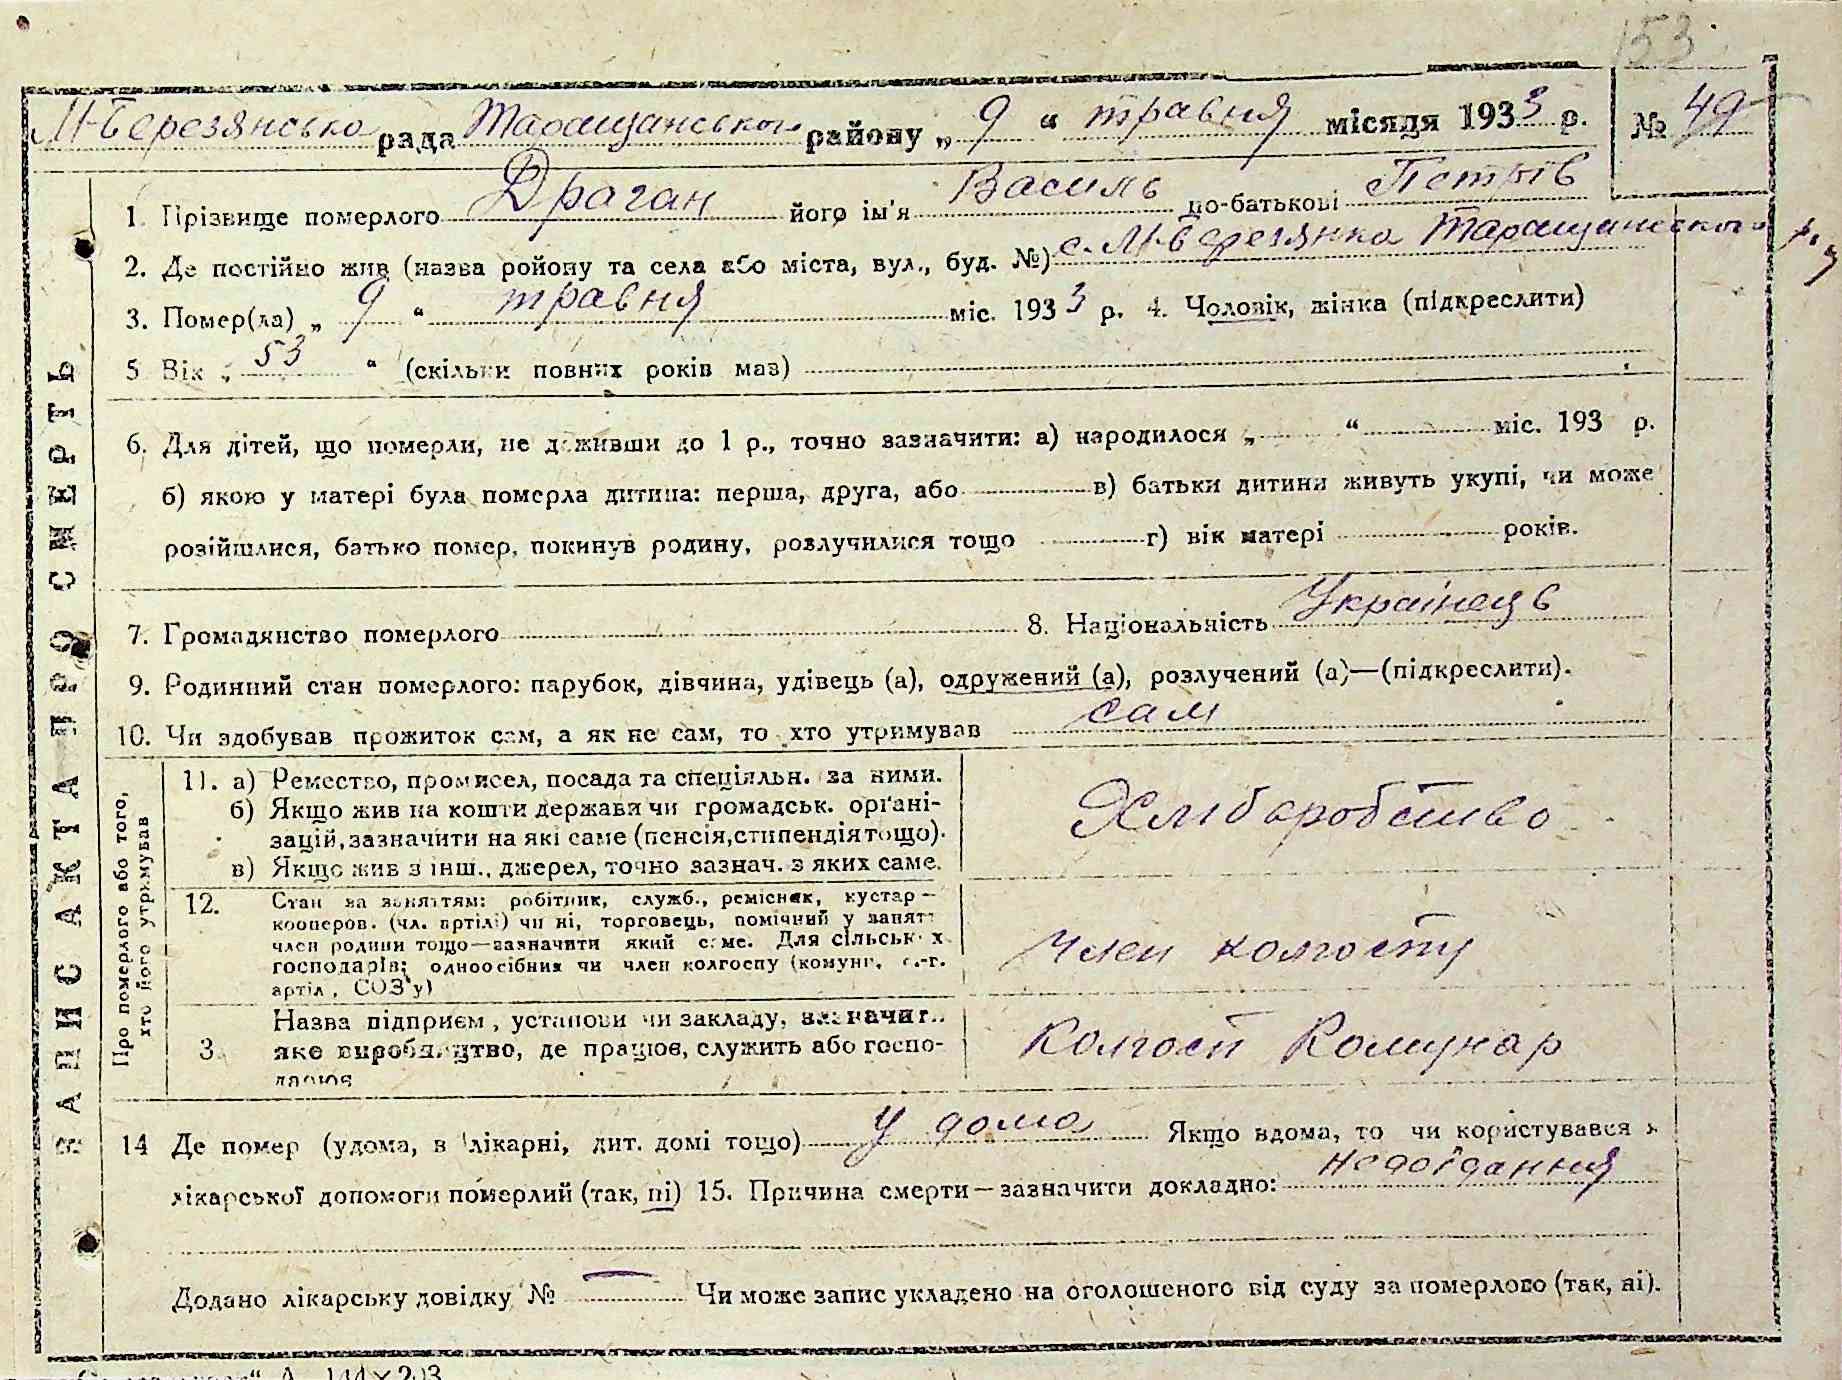 153
М-Березянська рада Таращанського району „ 9 “ травня місяця 1933 р. № 49
ЗАПИС АКТА ПРО СМЕРТЬ
1. Прізвище померлого Драган його ім'я Василь по-батькові Петрів
2. Де постійно жив (назва ройону та села або міста, вул., буд. №) с. М-Березянка Таращанського р-ну
3. Помер(ла) „ 9 “ травня міс. 1933 р. 4. Чоловік, жінка (підкреслити)
5 Вік „ 53 “ (скільки повних років має)
6. Для дітей, що померли, не доживши до 1 р., точно зазначити: а) народилося „ “ міс. 193 р.
б) якою у матері була померла дитина: перша, друга, або в) батьки дитини живуть укупі, чи може
розійшлися, батько помер, покинув родину, розлучилися тощо г) вік матері років.
7. Громадянство померлого 8. Національність Українець
9. Родинний стан померлого: парубок, дівчина, удівець (а), одружений (а), розлучений (а)—(підкреслити).
10. Чи здобував прожиток сам, а як не сам, то хто утримував сам
Про померлого або того,
хто його утримував
11. а) Ремество, промисел, посада та спеціяльн. за ними.
б) Якщо жив на кошти держави чи громадськ. орґані-
зацій, зазначити на які саме (пенсія, стипендія тощо).
в) Якщо жив з інш., джерел, точно зазнач. з яких саме.
Хліборобство
12. Стан за заняттям: робітник, служб., ремісник, кустар—
кооперов. (чл. артілі) чи ні, торговець, помічний у занятт
член родини тощо—зазначити який саме. Для сільськ х
господарів; одноосібник чи член колгоспу (комуни, с.-г.
артіл, СОЗ'у)
Член колгоспу
3. Назва підприєм, установи чи закладу, зазначит..
яке виробництво, де працює, служить або госпо-
дарює
Колгосп Комунар
14 Де помер (удома, в лікарні, дит. домі тощо) у дома Якщо вдома, то чи користувався з
лікарської допомоги померлий (так, ні) 15. Причина смерти—зазначити докладно: недоїдання
Додано лікарську довідку № — Чи може запис укладено на оголошеного від суду за померлого (так, ні).
А 144×203